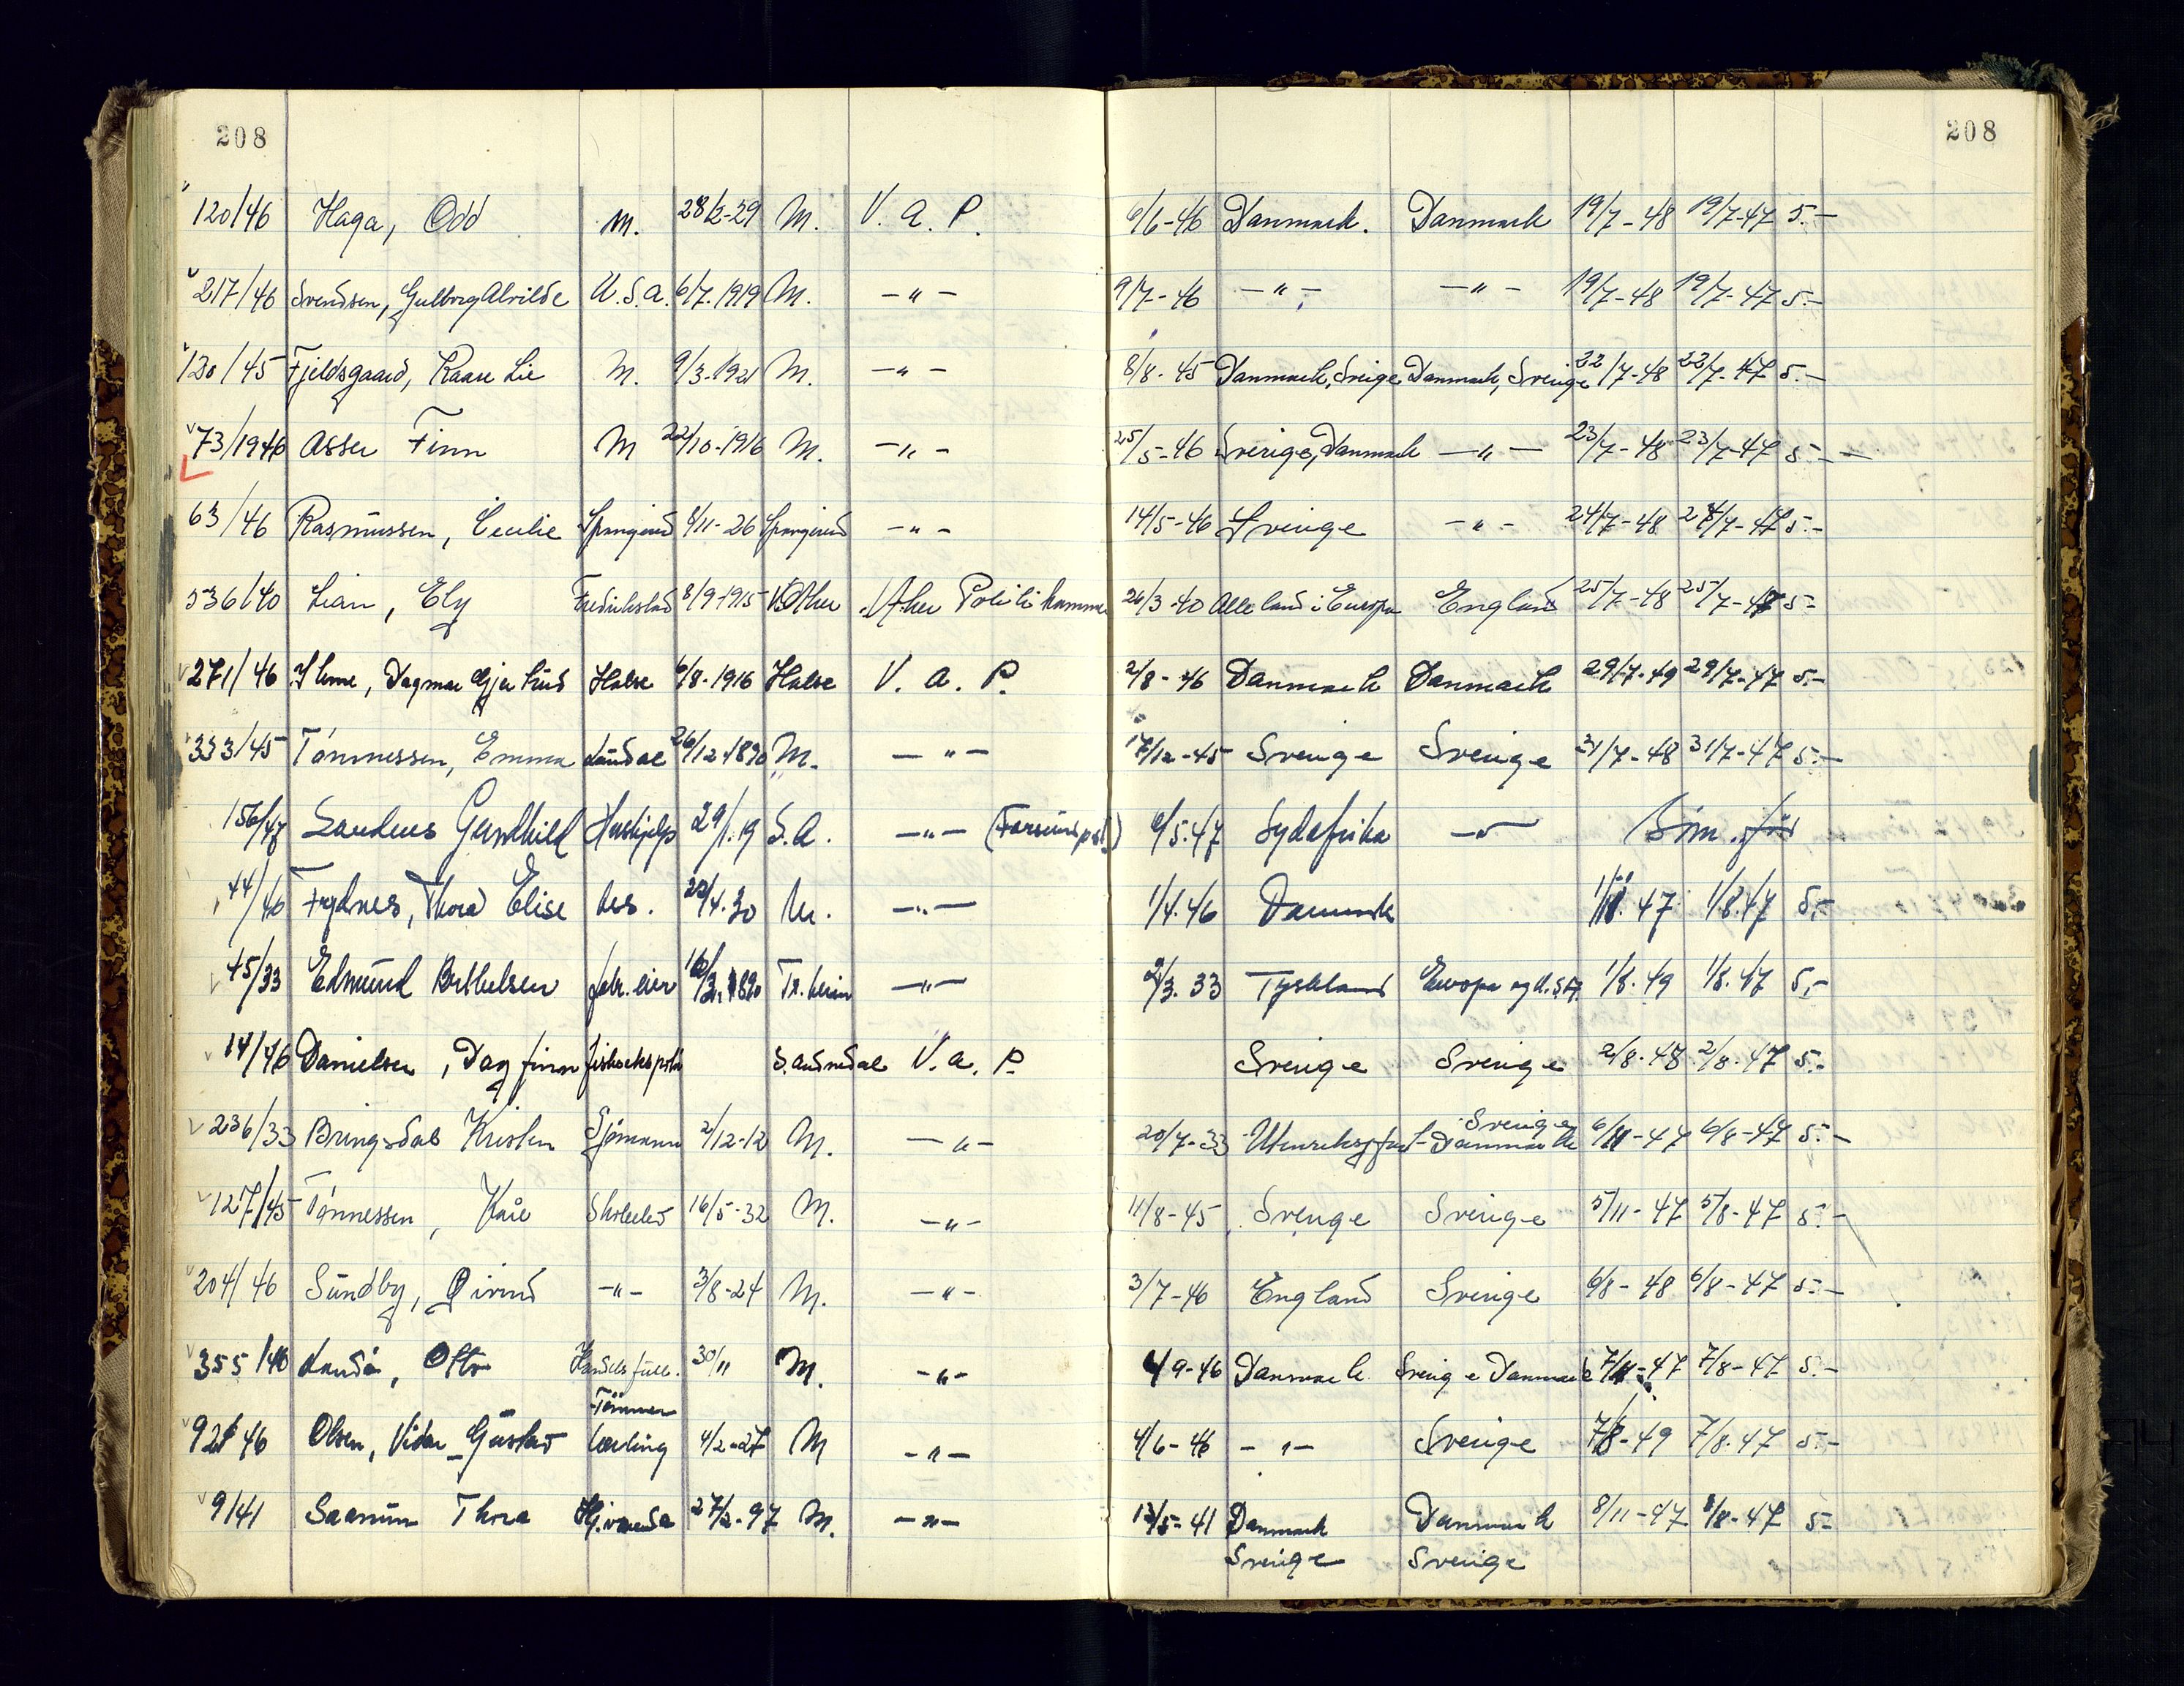 208 208
120/46 Haga, Odd M. 28/2-29 M. V. A. P. 6/6-46 Danmark. Danmark 19/7-48 19/7-47 5.-
217/46 Svendsen, Gulborg Alvilde U.S.A. 6/7.1919 M. -"- 9/7-46 -"- -"- 19/7-48 19/7-47 5.-
120/45 Fjeldsgaard, Kaare Lie M. 9/3-1921 M. -"- 8/8-45 Danmark, Sveige Danmark, Sverige 22/7-48 22/7-47 5.-
73/1946 Asser Finn M 22/10-1916 M. -"- 25/5-46 Sverige, Danmark -"- 23/7-48 23/7-47 5.-
63/46 Rasmussen, Cecilie Spangereid 8/11-26 Spangereid -"- 14/5-46 Sverige -"- 24/7-48 24/7-47 5.-
536/40 Lian, Ely Fredrikstad 8/9-1915 V. Aker Aker Politikammer 26/3-40 Alle land i Europa England 25/7-48 25/7-47 5-
271/46 Ihme, Dagmar Gjertrud Halse 6/8-1916 Halse V. A. P. 2/8-46 Danmark Danmark 29/7-49 29/7-47 5.-
333/45 Tönnessen, Emma Laudal 26/12-1890 M. -"- 17/12-45 Sverige Sverige 31/7-48 31/7-47 5.-
156/47 Gunhild Hushjelp 29/1.19 S.A. -"- 6/5.47 Sydafrika -"-
44/46 Frydnes, Thora Elise 22/4.30 M. -"- 1/4.46 Danmark 1/11.47 1/8.47 5,-
45/33 Edmund Berthelsen fabr.eier Tr.heim -"- 2/3.33 Tyskland Europa og U.S.A. 1/8.49 1/8.47 5,-
14/46 Danielsen, Dagfinn S. Audnedal V. A. P. Sverige Sverige 2/8-48 2/8-47 5.-
236/33 Bringsdal Kristen Sjömann 2/12-12 M. -"- 20/7-33 Utenrikspart- Sverige Danmark 6/11-47 6/8-47 5.-
127/45 Tönnessen, Kåre Skoleelev 16/5-32 M. -"- 11/8-45 Sverige Sverige 5/11-47 5/8-47 5.-
204/46 Sundby, Øivind -"- 3/8-24 M. -"- 3/7-46 England Sverige 6/8-48 6/8-47 5.-
355/46 Landå, Otto Handelsfullm. 30/11 M. -"- 4/9-46 Danmark Sverige Danmark 7/11-47 7/8-47 5.-
Tömmer
92/46 Olsen, Vidar Gustav lærling 4/2-27 M -"- 4/6-46 -"- Sverige 7/8-49 7/8-47 5.-
9/41 Saanum Thora 27/2-97 M. -"- 13/5-41 Danmark Danmark 8/11-47 8/8-47 5-
Sverige Sverige